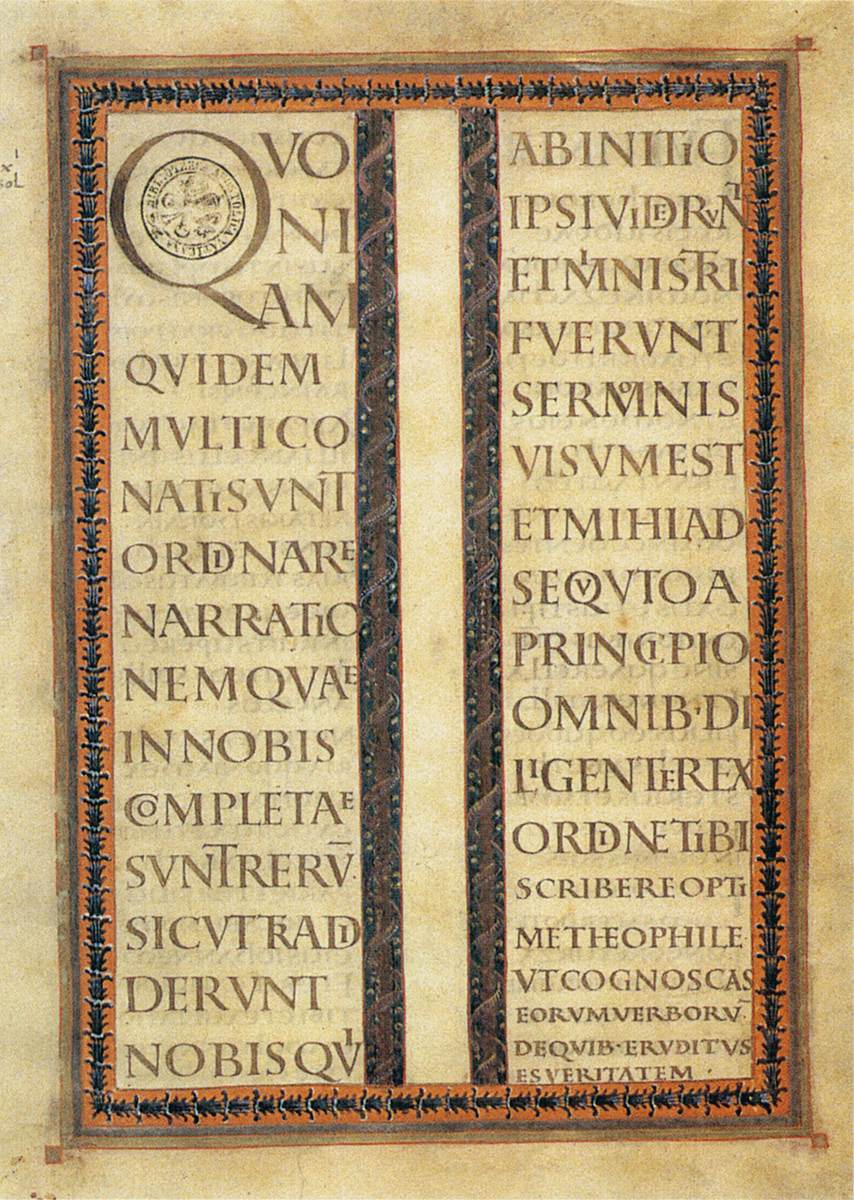 QVO
NI
AM
QVIDEM
MVLTICO
NATISVNT
ORDINARE
NARRATIO
NEMQVAE
INNOBIS
COMPLETAE
SVNTRERV̅
SICVTTRADI
DERVNT
NOBISQVI
ABINITIO
IPSIVIDERVN̅T
ETMINISTRI
FVERVNT
SERMONIS
VISVMEST
ETMIHIAD
SEQVVTOA
PRINCIPIO
OMNIB·DI
LIGENTEREX
ORDINETIBI
SCRIBEREOPTI
METHEOPHILE
VTCOGNOSCAS
EORVMVERBORV̅
DEQVIB·ERVDITVS
ESVERITATEM